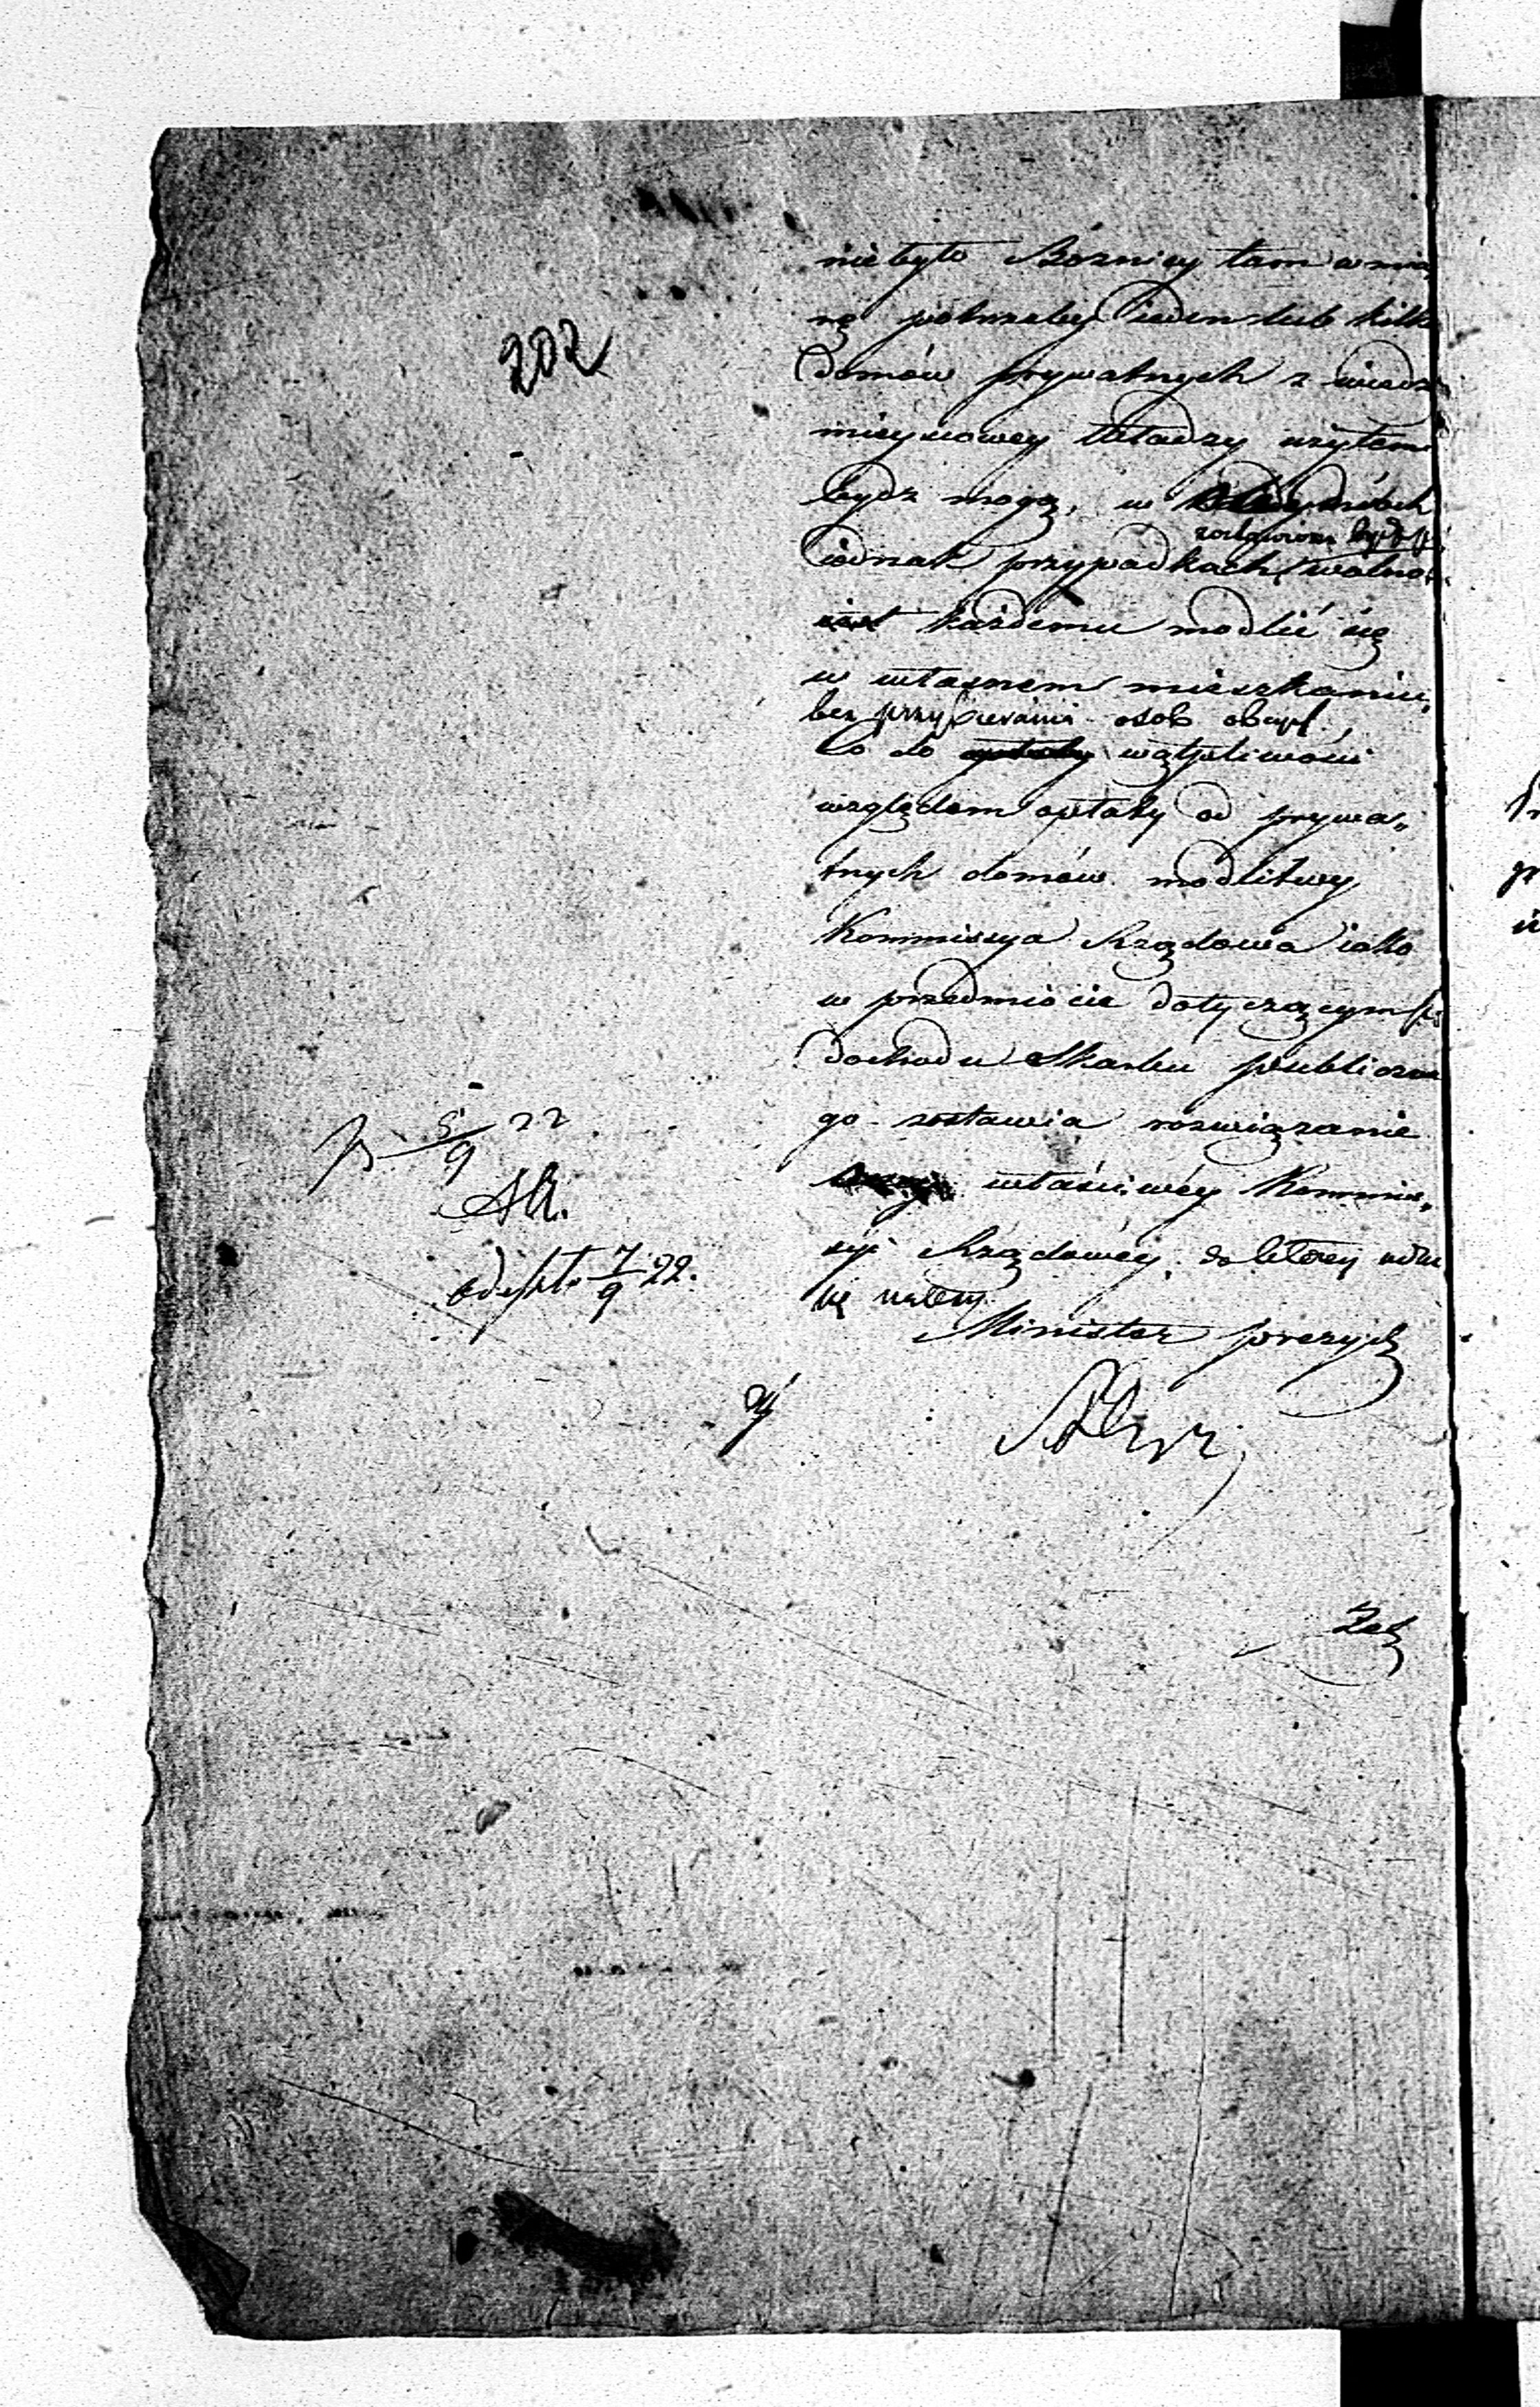 202
niebyło Bóżnicy tam w mia
rę potrzeby ieden lub kilka
domów prywatnych z wiedzą
mieyscowey Władzy użytem
bydź mogą, w
zostawiona bydź
iednak przypadkach wolno
iest każdemu modlić się
w własnem mieszkaniu,
bez przybierania osób obcych,
Co do wątpliwości
względem opłaty od prywa„
tnych domów modlitwy
Kommissya Rządowa iako
w przedmiocie dotyczącym się
dochodu Skarbu publiczne
go zostawia rozwiązanie
właściwéy Kommis„
syi Rządowéy, do którey udać
się należy.
Minister prezyd
5/9 22
7/9 22.